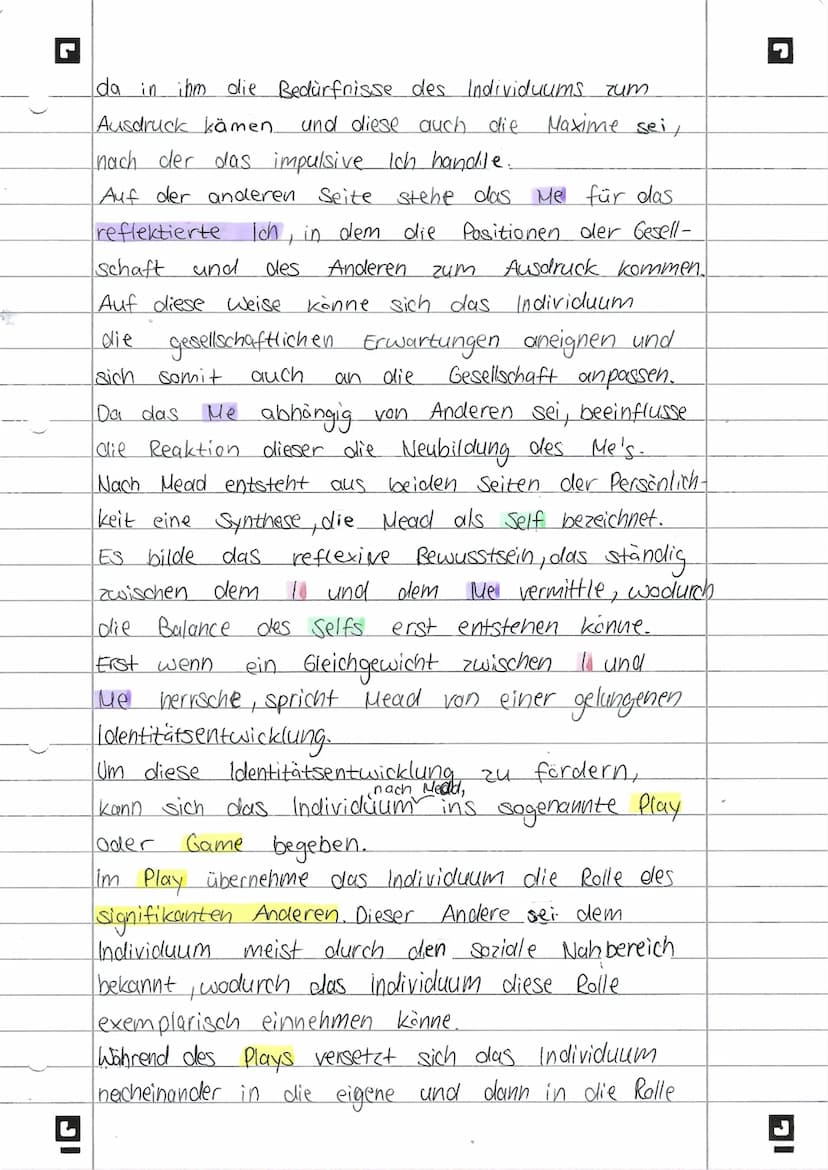 da in ihm die Bedürfnisse des Individuums zum
Ausdruck kämen und diese auch die Maxime sei,
nach der das impulsive Ich handle.
Auf der anderen Seite stehe das Me für das
reflektierte Ich, in dem die Positionen der Gesell-
schaft und des Anderen zum Ausdruck kommen.
Auf diese Weise könne sich das Individuum
die gesellschaftlichen Erwartungen aneignen und
sich somit auch an die Gesellschaft anpassen.
Da das Me abhängig von Anderen sei, beeinflusse
die Reaktion dieser die Neubildung des Me's.
Nach Mead entsteht aus beiden Seiten der Persönlich-
keit eine Synthese, die Mead als Self bezeichnet.
Es bilde das reflexive Bewusstsein, das ständig
zwischen dem I und dem Me vermittle, wodurch
die Balance des Selfs erst entstehen könne.
Erst wenn ein Gleichgewicht zwischen I und
Me herrsche, spricht Mead von einer gelungenen
Identitätsentwicklung.
Um diese Identitätsentwicklung zu fördern,
kann sich das Individuum nach Mead, ins sogenannte Play
oder Game begeben.
Im Play übernehme das Individuum die Rolle des
signifikanten Anderen. Dieser Andere sei dem
Individuum meist durch den soziale Nahbereich
bekannt, wodurch das Individuum diese Rolle
exemplarisch einnehmen könne.
Während des Plays versetzt sich das Individuum
nacheinander in die eigene und dann in die Rolle